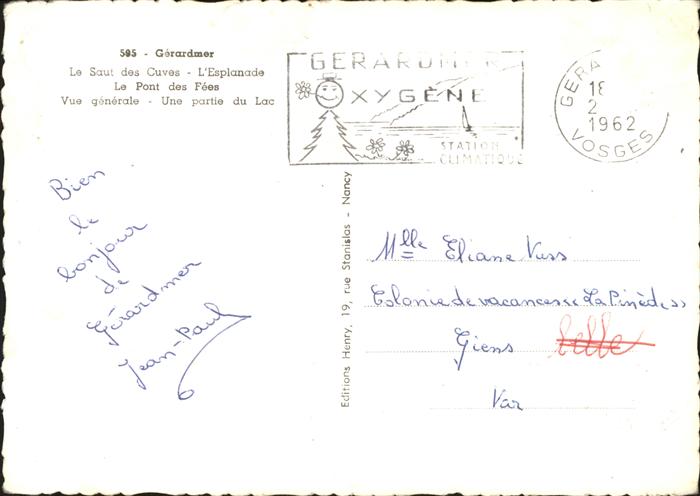 595 - Gérardmer
Le Saut des Cuves - L'Esplanade
Le Pont des Fées
Vue générale - Une partie du Lac
GERARDMER
OXYGÈNE
STATION
CLIMATIQUE
GERA
18
2
1962
VOSGES
Bien
le
bonjour
de
Gérardmer
Jean-Paul
Editions Henry, 19, rue Stanislas - Nancy
Mlle Eliane Vuss
Colonie de vacances « La Pinède »
Giens belle
Var